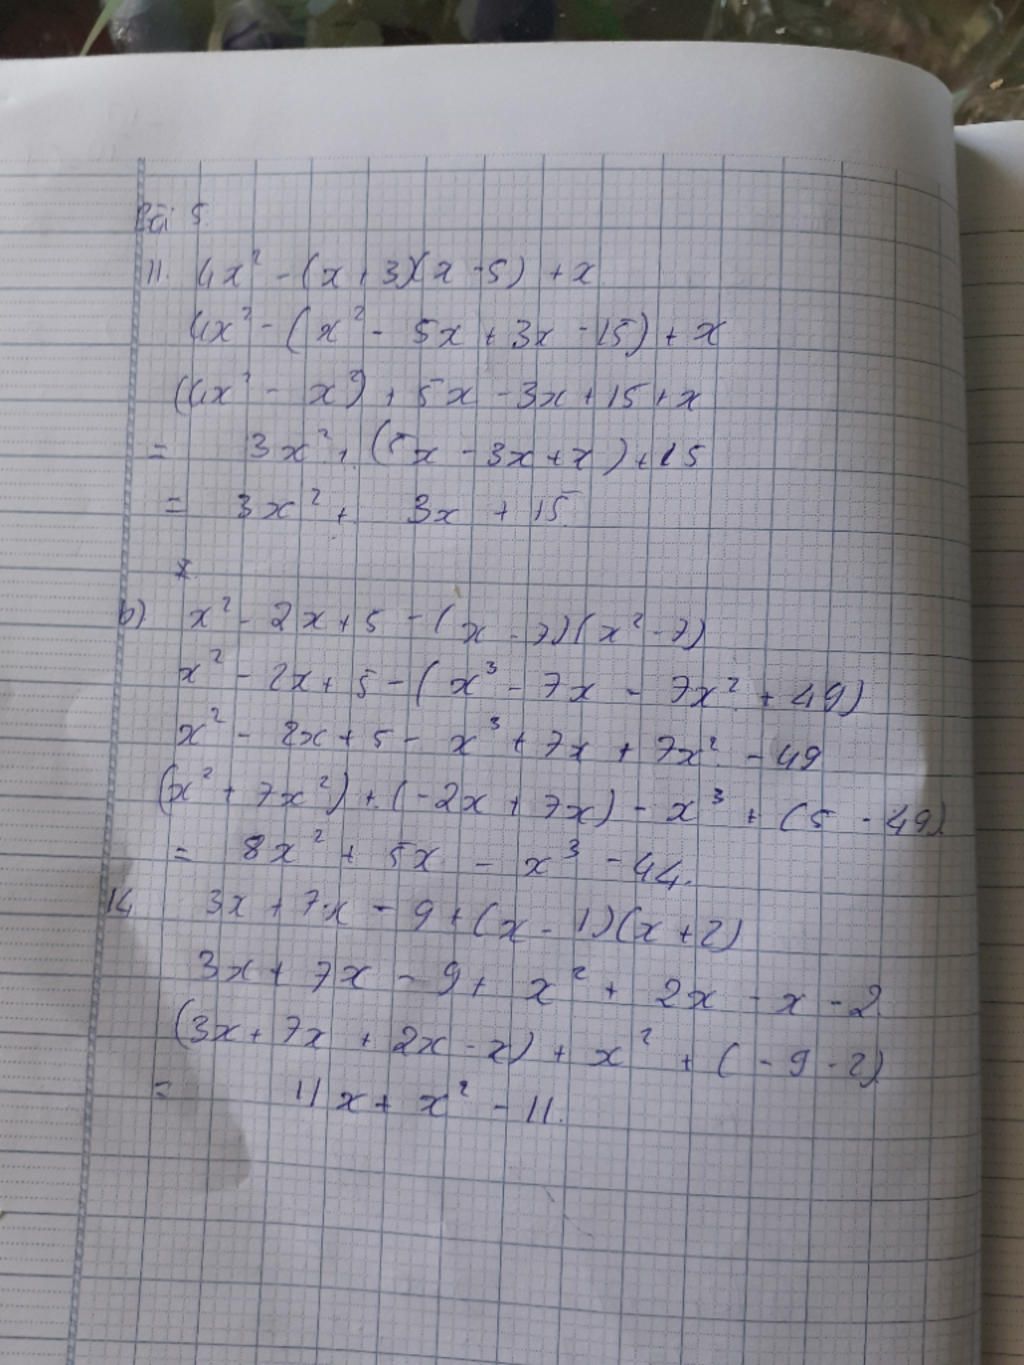 Bài 5.
11. 4x² - (x + 3)(x - 5) + x
4x² - (x² - 5x + 3x - 15) + x
(4x² - x²) + 5x - 3x + 15 + x
= 3x² + (5x - 3x + x) + 15
= 3x² + 3x + 15.
b) x² - 2x + 5 - (x - 7)(x² - 7)
x² - 2x + 5 - (x³ - 7x - 7x² + 49)
x² - 2x + 5 - x³ + 7x + 7x² - 49
(x² + 7x²) + (-2x + 7x) - x³ + (5 - 49)
= 8x² + 5x - x³ - 44.
14 3x + 7x - 9 + (x - 1)(x + 2)
3x + 7x - 9 + x² + 2x - x - 2.
(3x + 7x + 2x - x) + x² + (-9 - 2)
= 11x + x² - 11.